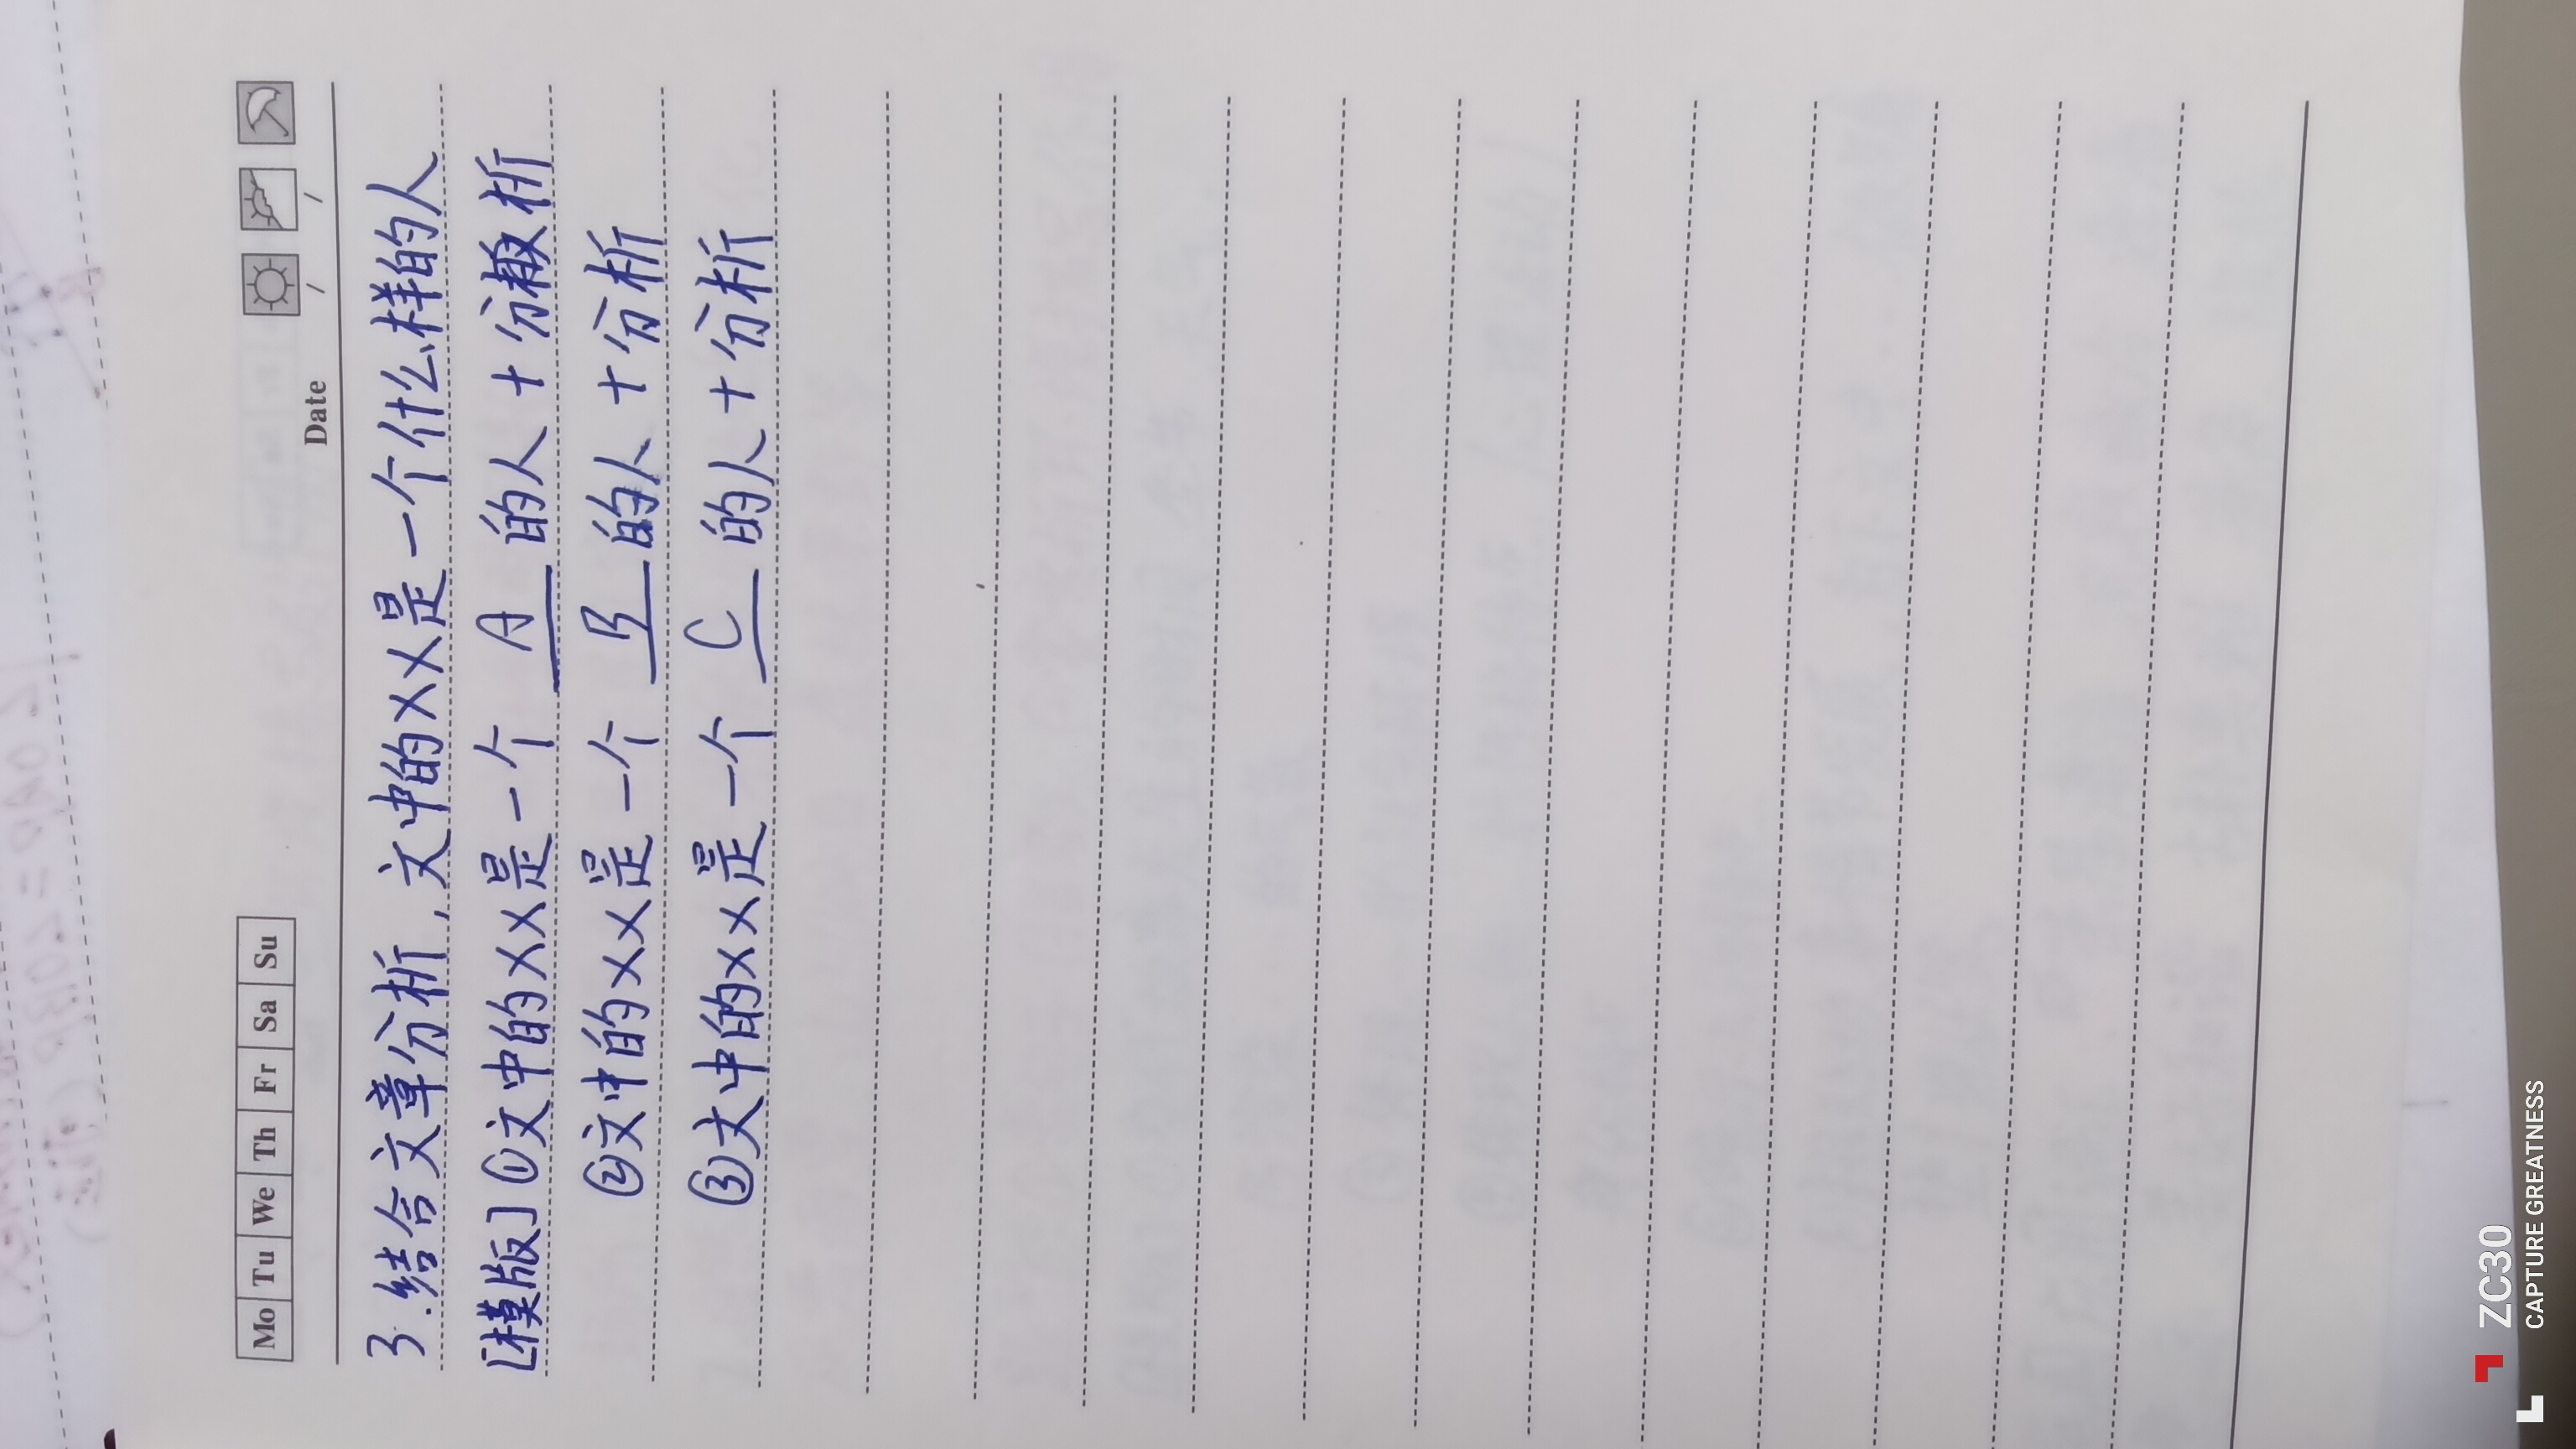 Mo Tu We Th Fr Sa Su
Date / /
3.结合文章分析,文中的XX是一个什么样的人
[模版]①文中的XX是一个 A 的人+分析
②文中的XX是一个 B 的人+分析
③文中的XX是一个 C 的人+分析
ZC30
CAPTURE GREATNESS